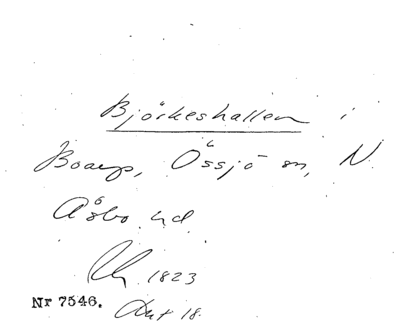 Björkeshallen i
Boarp, Össjö sn, N.
Åsbo hd.
1823
Nr 7546. Akt 18.